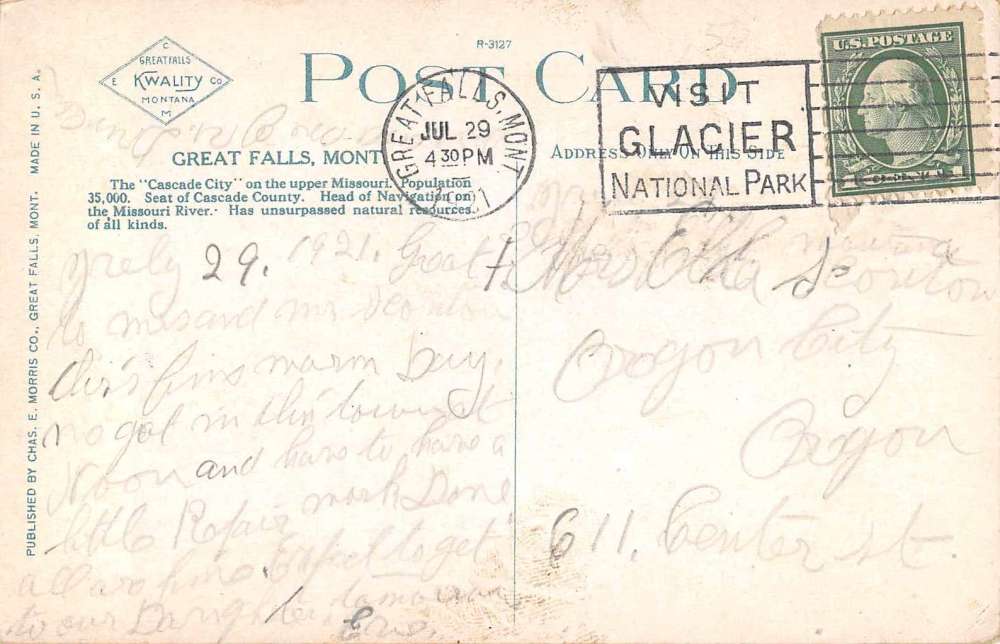 R-3127
POST CARD
C
GREAT FALLS
E KWALITY CO
MONTANA
M
GREAT FALLS, MONT
The "Cascade City" on the upper Missouri. Population
35,000. Seat of Cascade County. Head of Navigation on
the Missouri River. Has unsurpassed natural resources
of all kinds.
PUBLISHED BY CHAS. E. MORRIS CO., GREAT FALLS, MONT. MADE IN U. S. A.
GREAT FALLS, MONT.
JUL 29
4 30 PM
VISIT
GLACIER
NATIONAL PARK
U.S. POSTAGE
ADDRESS ONLY ON THIS SIDE
29. 1921. Great
warm Day.
in this town at
Noon and have to have a
little Repair work Done
all are fine. Expect to get
to our Daughter tomorrow
Oregon City
Oregon
611. Center st.